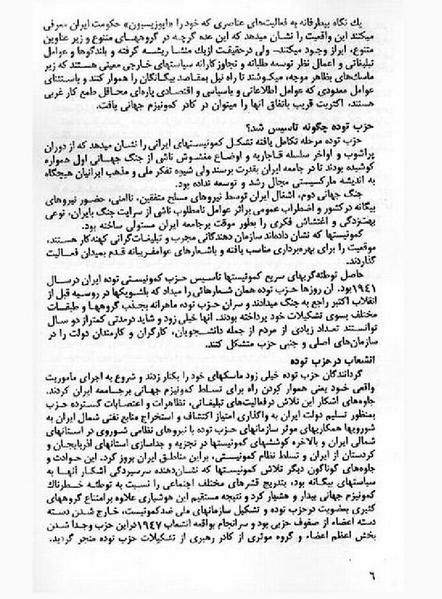 یك نگاه بیطرفانه به فعالیت‌های عناصری که خود را «اپوزیسیون» حکومت ایران معرفی
میکنند این واقعیت را نشان میدهد که این عده گرچه در گروههای متنوع و زیر عناوین
متنوع، ابراز وجود میکنند- ولی درحقیقت ازیك منشا ریشه گرفته و بلندگوها و عوامل
تبلیغاتی و اعمال نظر توسعه طلبانه و تجاوزکارانه سیاستهای خارجی معینی هستند که زیر
ماسك‌های بظاهر موجه، میکوشند تا راه نیل بمقاصد بیگانگان را هموار کنند و باستثنای
عوامل معدودی که عوامل اطلاعاتی و یاسیاسی و اقتصادی پاره‌ای محافل طامع کار غربی
هستند، اکثریت قریب باتفاق آنها را میتوان در کادر کمونیزم جهانی یافت.
حزب توده چگونه تاسیس شد؟
حزب توده مرحله تکامل یافته تشکل کمونیستهای ایرانی را نشان میدهد که از دوران
پرآشوب و اواخر سلسله قاجاریه و اوضاع مغشوش ناشی از جنگ جهانی اول همواره
کوشیده بودند تا در جامعه ایران بقدرت برسند ولی شیوه تفکر ملی و مذهب ایرانیان هیچگاه
به اندیشه مارکسیستی مجال رشد و توسعه نداده بود.
جنگ جهانی دوم، اشغال ایران توسط نیروهای مسلح متفقین، ناامنی، حضور نیروهای
بیگانه درکشور و اضطراب عمومی براثر عوامل نامطلوب ناشی از سرایت جنگ بایران، نوعی
بهت‌زدگی و اغتشاش فکری را بطور موقت برجامعه ایران مستولی ساخته بود.
کمونیستها که نشان داده‌اند سازمان دهندگانی مجرب و تبلیغات‌گرانی کهنه‌کار هستند،
موقعیت را برای بهره‌برداری مناسب یافته و باشعارهای عوامفریبانه قدم بمیدان فعالیت
گذاردند.
حاصل توطئه‌گریهای سریع کمونیستها تاسیس حزب کمونیستی توده ایران درسال
۱۹۴۱ بود. آن روزها حزب توده همان شعارهائی را میداد که بلشویکها در روسیه قبل از
انقلاب اکتبر راجع به جنگ میدادند و سران حزب توده ماهرانه بجذب گروهها و طبقات
مختلف بسوی تشکیلات خود پرداخته بودند. آنها خیلی زود و شاید درمدتی کمتراز دو سال
توانستند تعداد زیادی از مردم از جمله دانشجویان، کارگران و کارمندان دولت را در
سازمان‌های اصلی و جنبی حزب متشکل کنند.
انشعاب در حزب توده
گردانندگان حزب توده خیلی زود ماسك‌های خود را بکنار زدند و شروع به اجرای ماموریت
واقعی خود یعنی هموار کردن راه برای تسلط کمونیزم جهانی برجامعه ایران کردند.
جلوه‌های آشکار این تلاش درفعالیت‌های تبلیغاتی، تظاهرات و اعتصابات گسترده حزب
بمنظور تسلیم دولت ایران به واگذاری امتیاز اکتشاف و استخراج منابع نفتی شمال ایران به
شورویها همکاریهای موثر سازمانهای حزب توده با نیروهای نظامی شوروی در استانهای
شمالی ایران و بالاخره کوششهای کمونیستها در تجزیه و جداسازی استانهای آذربایجان و
کردستان از ایران و تسلط نظام کمونیستی، براین مناطق ایران بروز کرد. این حوادث و
جلوه‌های گوناگون دیگر تلاش کمونیستها که نشان‌دهنده سرسپردگی آشکار آنها به
سیاستهای بیگانه بود، بتدریج قشرهای مختلف اجتماعی را نسبت به توطئه خطرناك
کمونیزم جهانی بیدار و هشیار کرد و نتیجه مستقیم این هوشیاری علاوه برامتناع گروههای
کثیری بعضویت درحزب توده و تشکیل سازمانهای ملی ضدکمونیست، خارج شدن دسته
دسته اعضاء از صفوف حزبی بود و سرانجام بواقعه انشعاب ۱۹۴۷ دراین حزب وجدا شدن
بخش اعظم اعضاء و گروه موثری از کادر رهبری از تشکیلات حزب توده منجر گردید.
۶